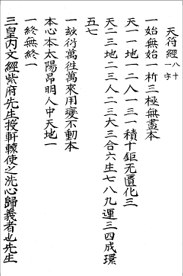 天符經 八十一字
一始無始一析三極無盡本
天一一地一二人一三一積十鉅無匱化三
天二三地二三人二三大三合六生七八九運三四成環
五七
一妙衍萬往萬來用變不動本
本心本太陽昂明人中天地一
一終無終一
三皇內文經紫府先生授軒轅使之洗心歸義者也先生